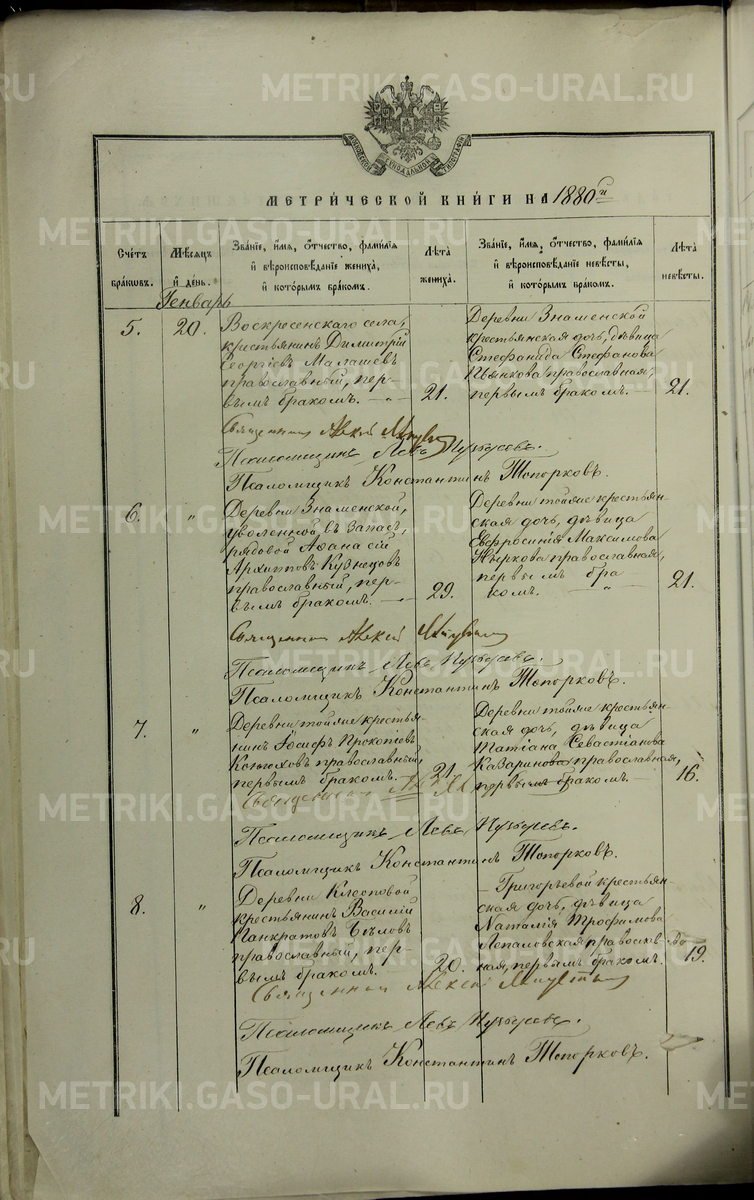 METRIKI.GASO-URAL.RU
МОСКОВСКОЙ СУНОДАЛЬНОЙ ТИПОГРАФІИ
МЕТРИ́ЧЕСКОЙ КНИ́ГИ НА 1880й
Сче́тъ бра́кωвъ.
Мѣ́сяцъ и҆ де́нь.
Зва́нїе, и҆́мя, ѻ҆́тчество, фамѝлїя и҆ вѣроисповѣ́данїе жениха̀, и҆ кото́рымъ бра́комъ.
Лѣ́та жениха̀.
Зва́нїе, и҆́мя, ѻ҆́тчество, фамѝлїя и҆ вѣроисповѣ́данїе невѣ́сты, и҆ кото́рымъ бра́комъ.
Лѣ́та невѣ́сты.
Генварь
5.
20.
Воскресенскаго села,
крестьянинъ Димитрій
Георгіевъ Малашевъ
православный, пер-
вымъ бракомъ.
21.
Деревни Знаменской
крестьянская дочь, дѣвица
Стефанида Стефанова
православная,
первымъ бракомъ.
21.
Священникъ Алексій
Псаломщикъ Левъ
Псаломщикъ Константинъ Топорковъ.
6.
"
Деревни Знаменской,
уволенной въ запасъ,
рядовой Аѳанасій
Архиповъ Кузнецовъ
православный, пер-
вымъ бракомъ.
29.
Деревни тойже крестьян-
ская дочь, дѣвица
Евфросинія Максимова
православная,
первымъ бра
комъ.
21.
Священникъ Алексій
Псаломщикъ Левъ
Псаломщикъ Константинъ Топорковъ.
7.
"
Деревни тойже крестья-
нинъ Іосифъ Прокопіевъ
Конюховъ православный,
первымъ бракомъ.
21.
Деревни тойже крестьян-
ская дочь, дѣвица
Татіана Севастіанова
Казаринова православная,
первымъ бракомъ.
16.
Священникъ
Псаломщикъ Левъ
Псаломщикъ Константинъ Топорковъ.
8.
"
Деревни Клеоповой
крестьянинъ Василій
Панкратовъ Бѣловъ
православный, пер-
вымъ бракомъ.
20.
Григорьевой крестьян-
ская дочь, дѣвица
Наталія Трофимова
православ
ная, первымъ бракомъ.
19.
Священникъ Алексій
Псаломщикъ Левъ
Псаломщикъ Константинъ Топорковъ.